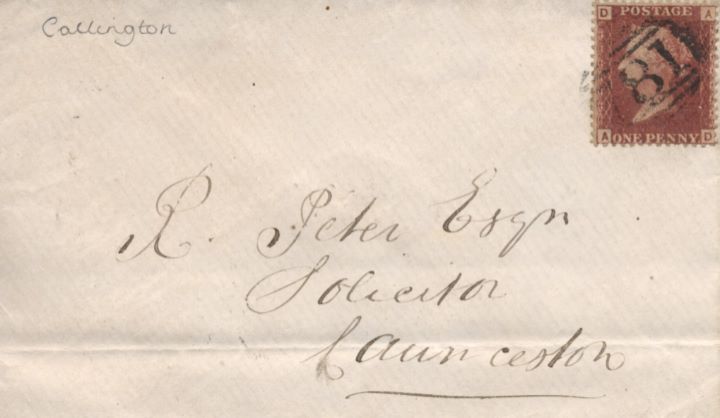 Callington
D POSTAGE A
81
A ONE PENNY D
R. Peter Esqr
Solicitor
Launceston